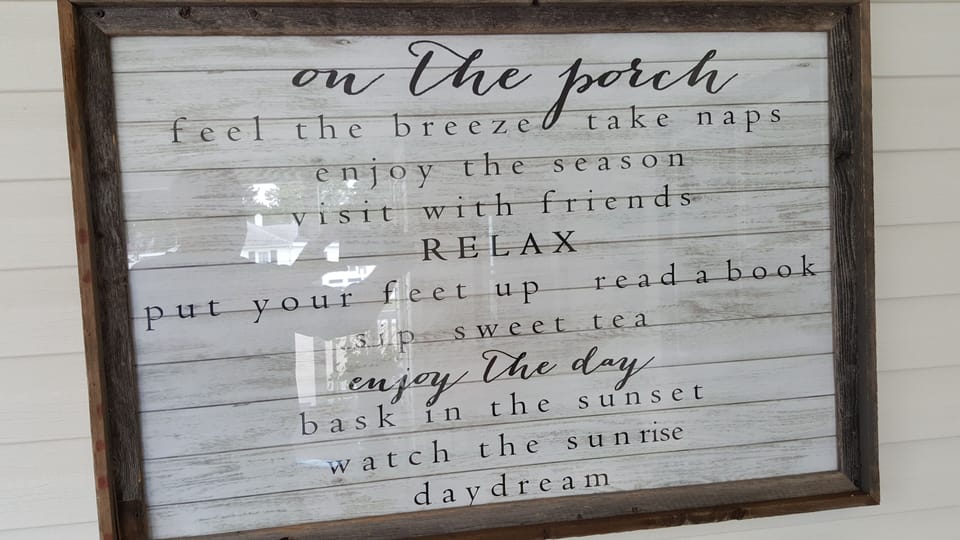 on the porch
feel the breeze take naps
enjoy the season
visit with friends
RELAX
put your feet up read a book
sip sweet tea
enjoy the day
bask in the sunset
watch the sunrise
daydream